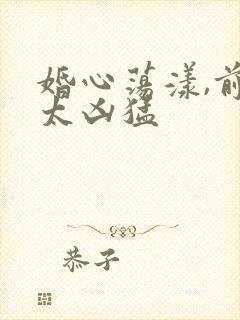 婚心荡漾,前
太凶猛
恭子